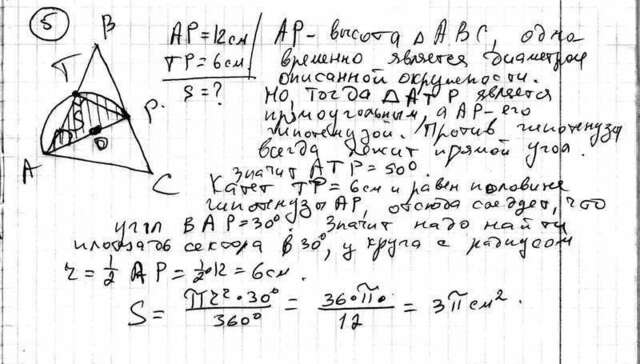 5
B
T
S
P.
O
A
C
AP=12см
TP=6см
S=?
AP-высота △ABC, одно
временно является диаметром
описанной окружности.
Но, тогда △ATP является
прямоугольным, а AP-его
гипотенузой. Против гипотенузы
всегда лежит прямой угол.
Значит ATP=90°.
Катет TP=6см и равен половине
гипотенузы AP, отсюда следует, что
угол BAP=30°. Значит надо найти
площадь сектора в 30°, у круга с радиусом
r=½ AP=½·12=6см.
S= πr²·30°/360° = 36·π·/12 = 3π см².